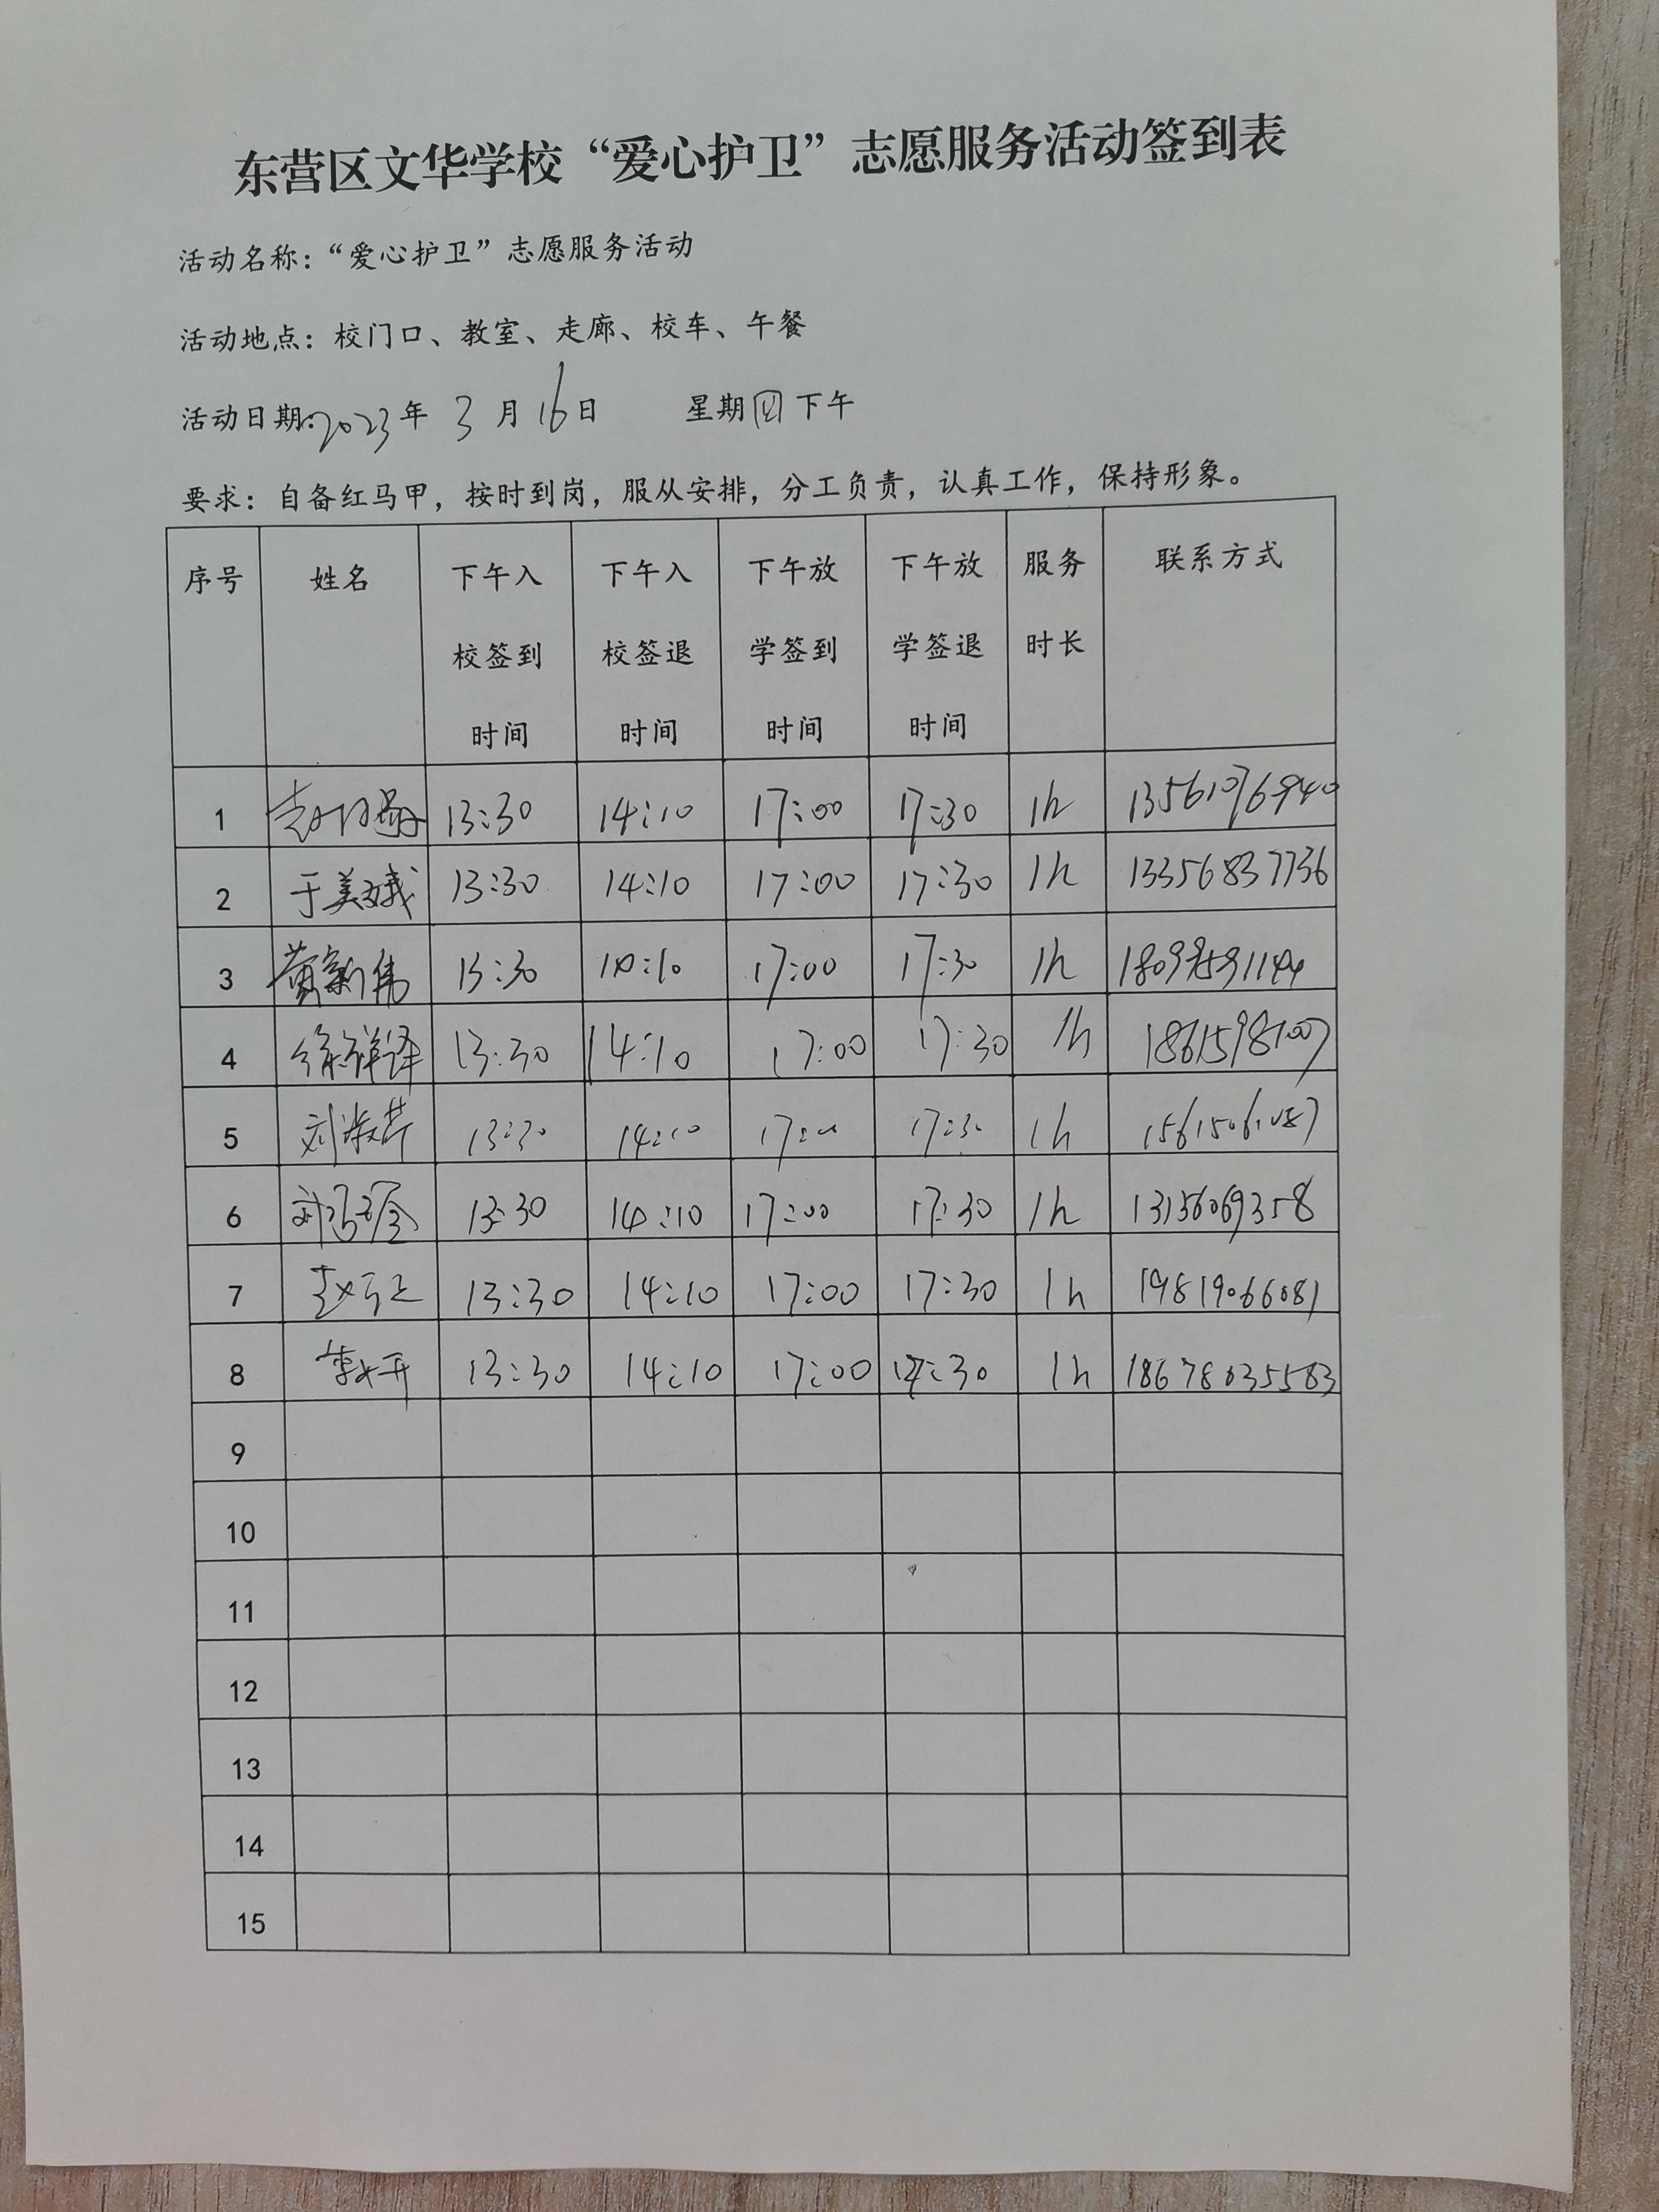 东营区文华学校“爱心护卫”志愿服务活动签到表
活动名称：“爱心护卫”志愿服务活动
活动地点：校门口、教室、走廊、校车、午餐
活动日期：2023年 3 月 16日 星期四下午
要求：自备红马甲，按时到岗，服从安排，分工负责，认真工作，保持形象。
序号 姓名 下午入校签到时间 下午入校签退时间 下午放学签到时间 下午放学签退时间 服务时长 联系方式
1 13:30 14:10 17:00 17:30 1h 13561076940
2 于美娥 13:30 14:10 17:00 17:30 1h 13356837736
3 黄新伟 13:30 14:10 17:00 17:30 1h
4 徐祥译 13:30 14:10 17:00 17:30 1h 18615981007
5 刘淑芹 13:30 14:10 17:00 17:30 1h
6 13:30 14:10 17:00 17:30 1h 13156069358
7 13:30 14:10 17:00 17:30 1h 19819066081
8 13:30 14:10 17:00 17:30 1h 18678635583
9
10
11
12
13
14
15